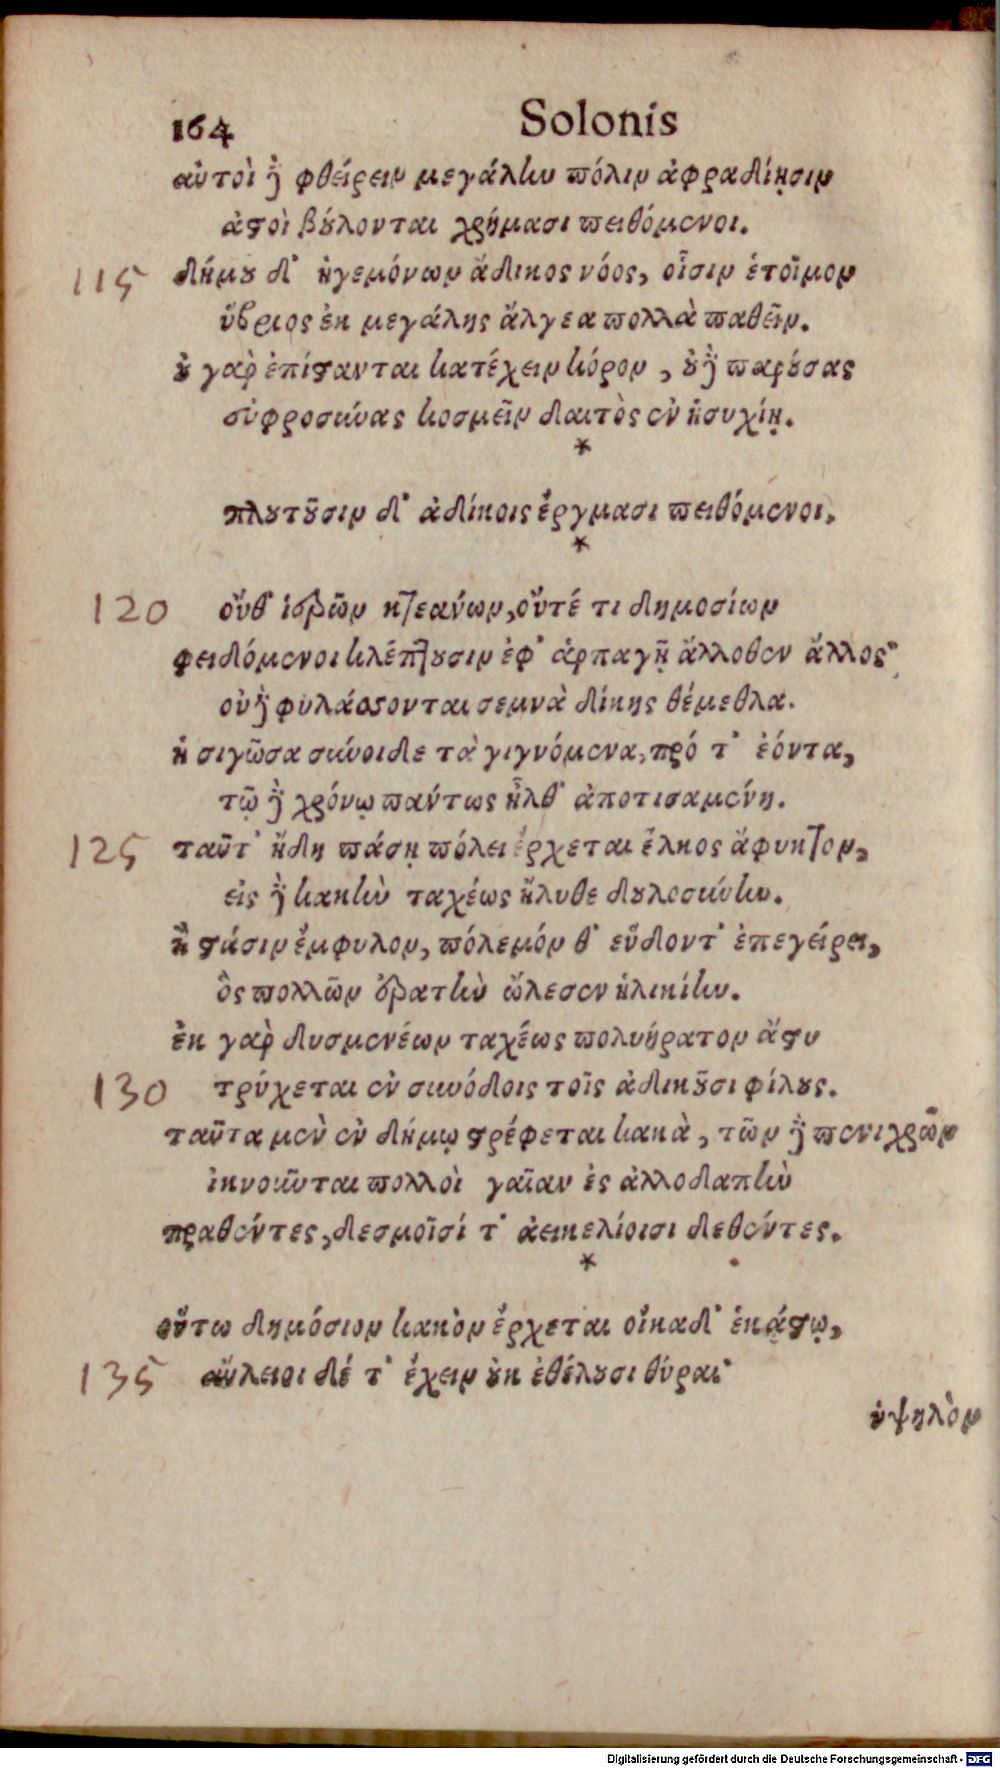 164 Solonis
αὐτοὶ δὲ φθείρειν μεγάλην πόλιν ἀφραδίῃσιν
ἀστοὶ βούλονται χρήμασι πειθόμενοι.
115 δήμου δ' ἡγεμόνων ἄδικος νόος, οἷσιν ἑτοῖμον
ὕβριος ἐκ μεγάλης ἄλγεα πολλὰ παθεῖν.
οὐ γὰρ ἐπίστανται κατέχειν κόρον, οὐδὲ παρούσας
εὐφροσύνας κοσμεῖν δαιτὸς ἐν ἡσυχίῃ.
*
πλουτοῦσιν δ' ἀδίκοις ἔργμασι πειθόμενοι,
*
120 οὔθ' ἱερῶν κτεανών, οὔτέ τι δημοσίων
φειδόμενοι κλέπτουσιν ἐφ' ἁρπαγῇ ἄλλοθεν ἄλλος·
οὐδὲ φυλάσσονται σεμνὰ δίκης θέμεθλα.
ἣ σιγῶσα σύνοιδε τὰ γιγνόμενα, πρό τ' ἐόντα,
τῷ δὲ χρόνῳ πάντως ἦλθ' ἀποτισαμένη.
125 ταῦτ' ἤδη πάσῃ πόλει ἔρχεται ἕλκος ἄφυκτον,
εἰς δὲ κακὴν ταχέως ἤλυθε δουλοσύνην.
ἣ στάσιν ἔμφυλον, πόλεμόν θ' εὕδοντ' ἐπεγείρει,
ὃς πολλῶν ἐρατὴν ὤλεσεν ἡλικίην.
ἐκ γὰρ δυσμενέων ταχέως πολυήρατον ἄστυ
130 τρύχεται ἐν συνόδοις τοῖς ἀδικοῦσι φίλους.
ταῦτα μὲν ἐν δήμῳ στρέφεται κακὰ, τῶν δὲ πενιχρῶν
ἱκνοῦνται πολλοὶ γαῖαν ἐς ἀλλοδαπὴν
πραθέντες, δεσμοῖσί τ' ἀεικελίοισι δεθέντες.
*
οὕτω δημόσιον κακὸν ἔρχεται οἴκαδ' ἑκάστῳ,
135 αὔλειοι δέ τ' ἔχειν οὐκ ἐθέλουσι θύραι·
ὑψηλὸν
Digitalisierung gefördert durch die Deutsche Forschungsgemeinschaft - DFG